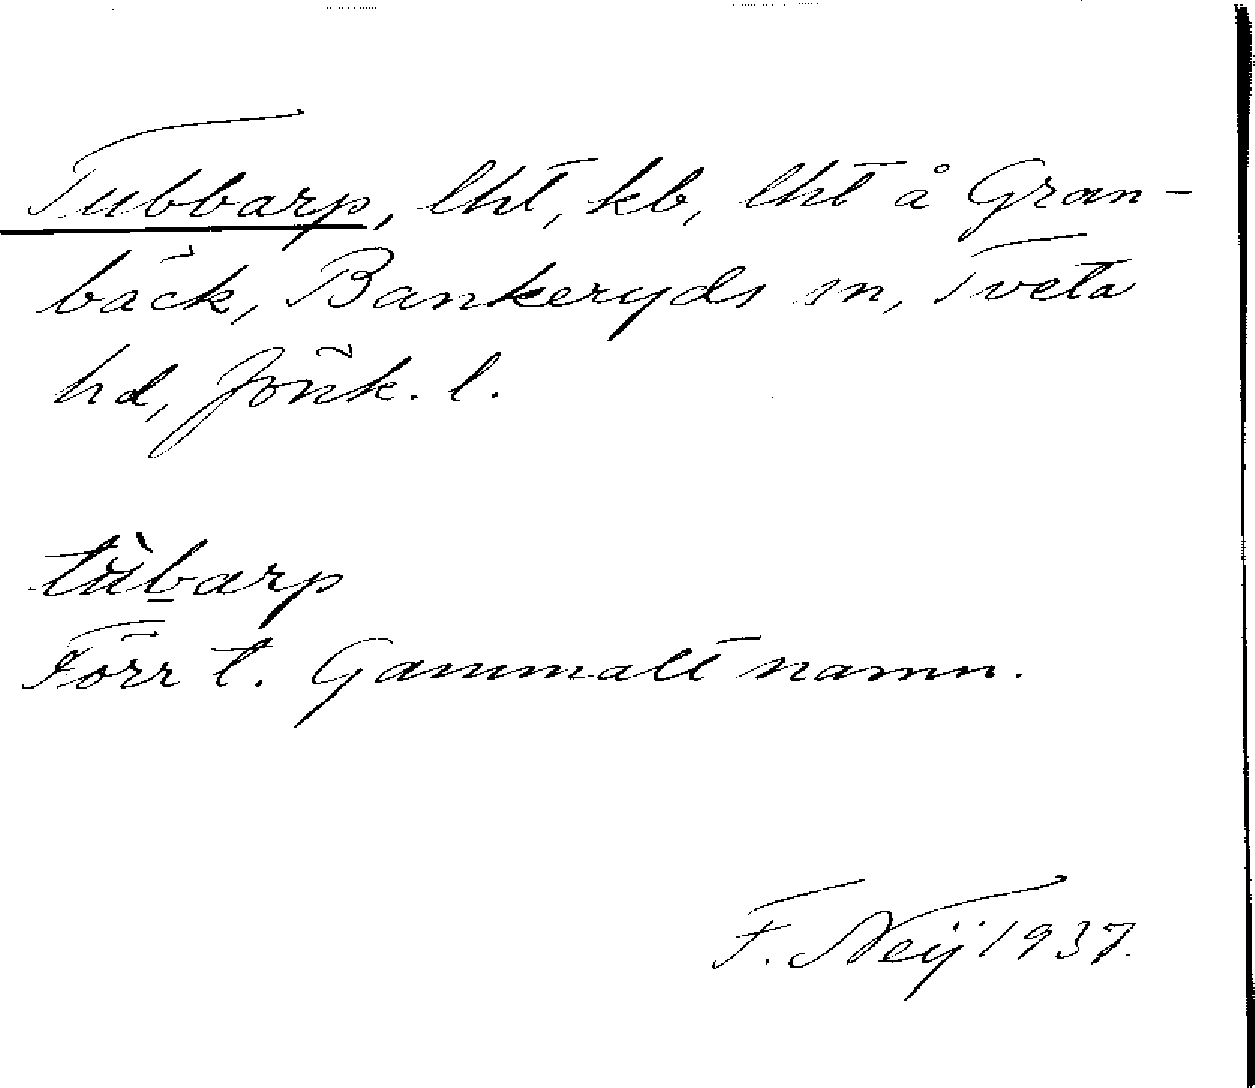 Tubbarp, lht, kb, lht å Gran-
bäck, Bankeryds sn, Tveta
hd, Jönk. l.
tùb̲arp
Förr t. Gammalt namn.
F. Neij 1937.